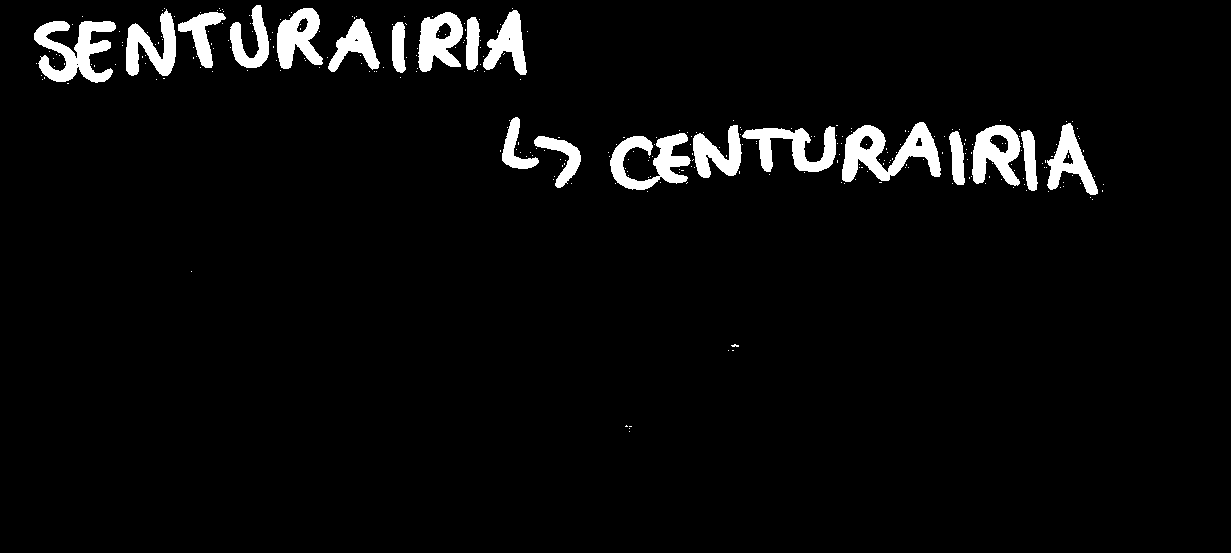 SENTURAIRIA
↳ CENTURAIRIA